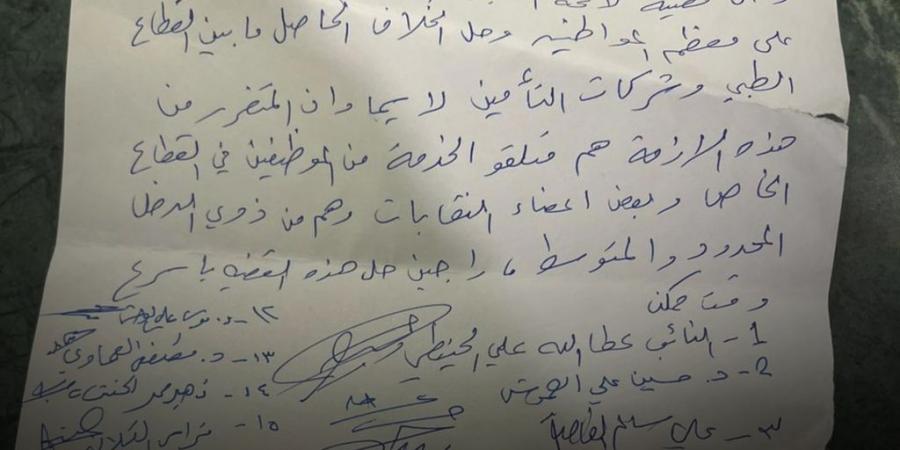 على معظم المواطنين وحل الخلاف الحاصل ما بين القطاع
الطبي وشركات التأمين لا سيما وان المتضرر من
هذه الازمة هم متلقو الخدمة من الموظفين في القطاع
الخاص وبعض اعضاء النقابات وهم من ذوي الدخل
المحدود والمتوسط راجين حل هذه القضيه باسرع
وقت ممكن
1- النائب عطا الله علي الحنيطي
2- د. حسين علي
٣- علي سليم
١٢- د.
١٣- د. مصطفى العماوي
١٤- زهير محمد
١٥- فراس